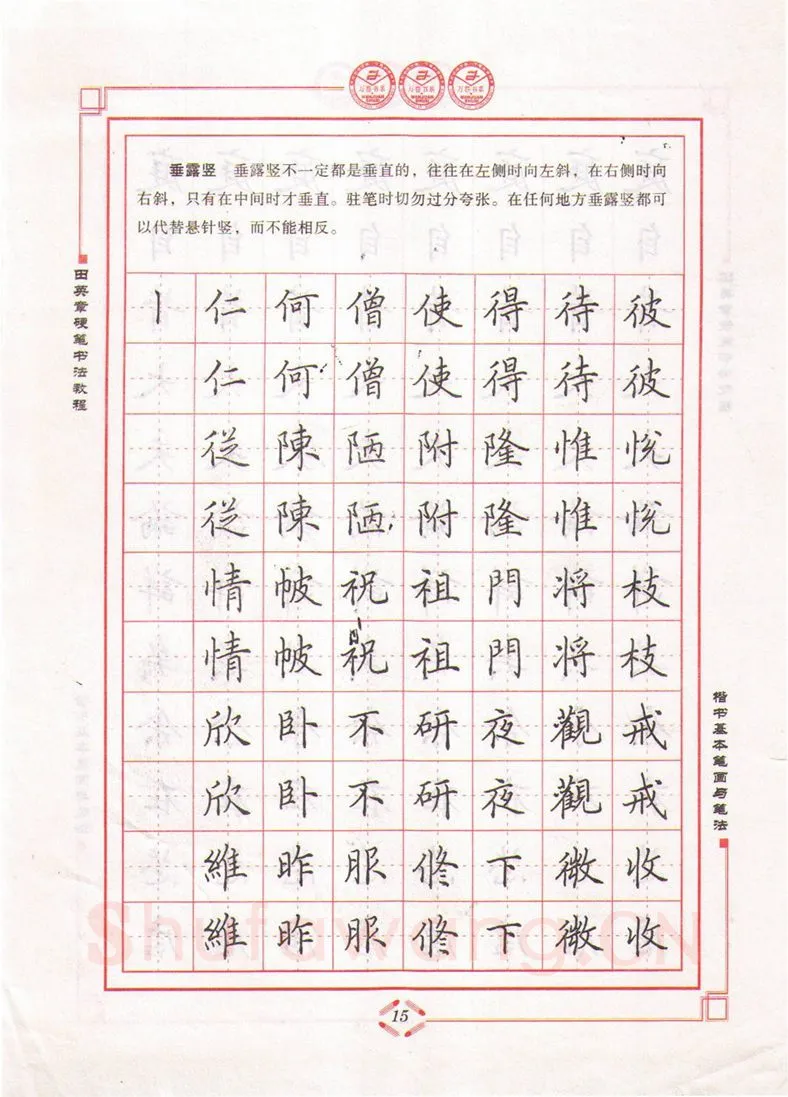 万卷书系 万卷书系 万卷书系
垂露竖 垂露竖不一定都是垂直的，往往在左侧时向左斜，在右侧时向
右斜，只有在中间时才垂直。驻笔时切勿过分夸张。在任何地方垂露竖都可
以代替悬针竖，而不能相反。
田英章硬笔书法教程
丨仁何僧使得待彼
仁何僧使得待彼
従陳陋附隆惟悦
従陳陋附隆惟悦
情帔祝祖門将枝
情帔祝祖門将枝
欣卧不研夜觀戒
欣卧不研夜觀戒
維昨服修下微收
維昨服修下微收
楷书基本笔画与笔法
Shufawang.CN
15